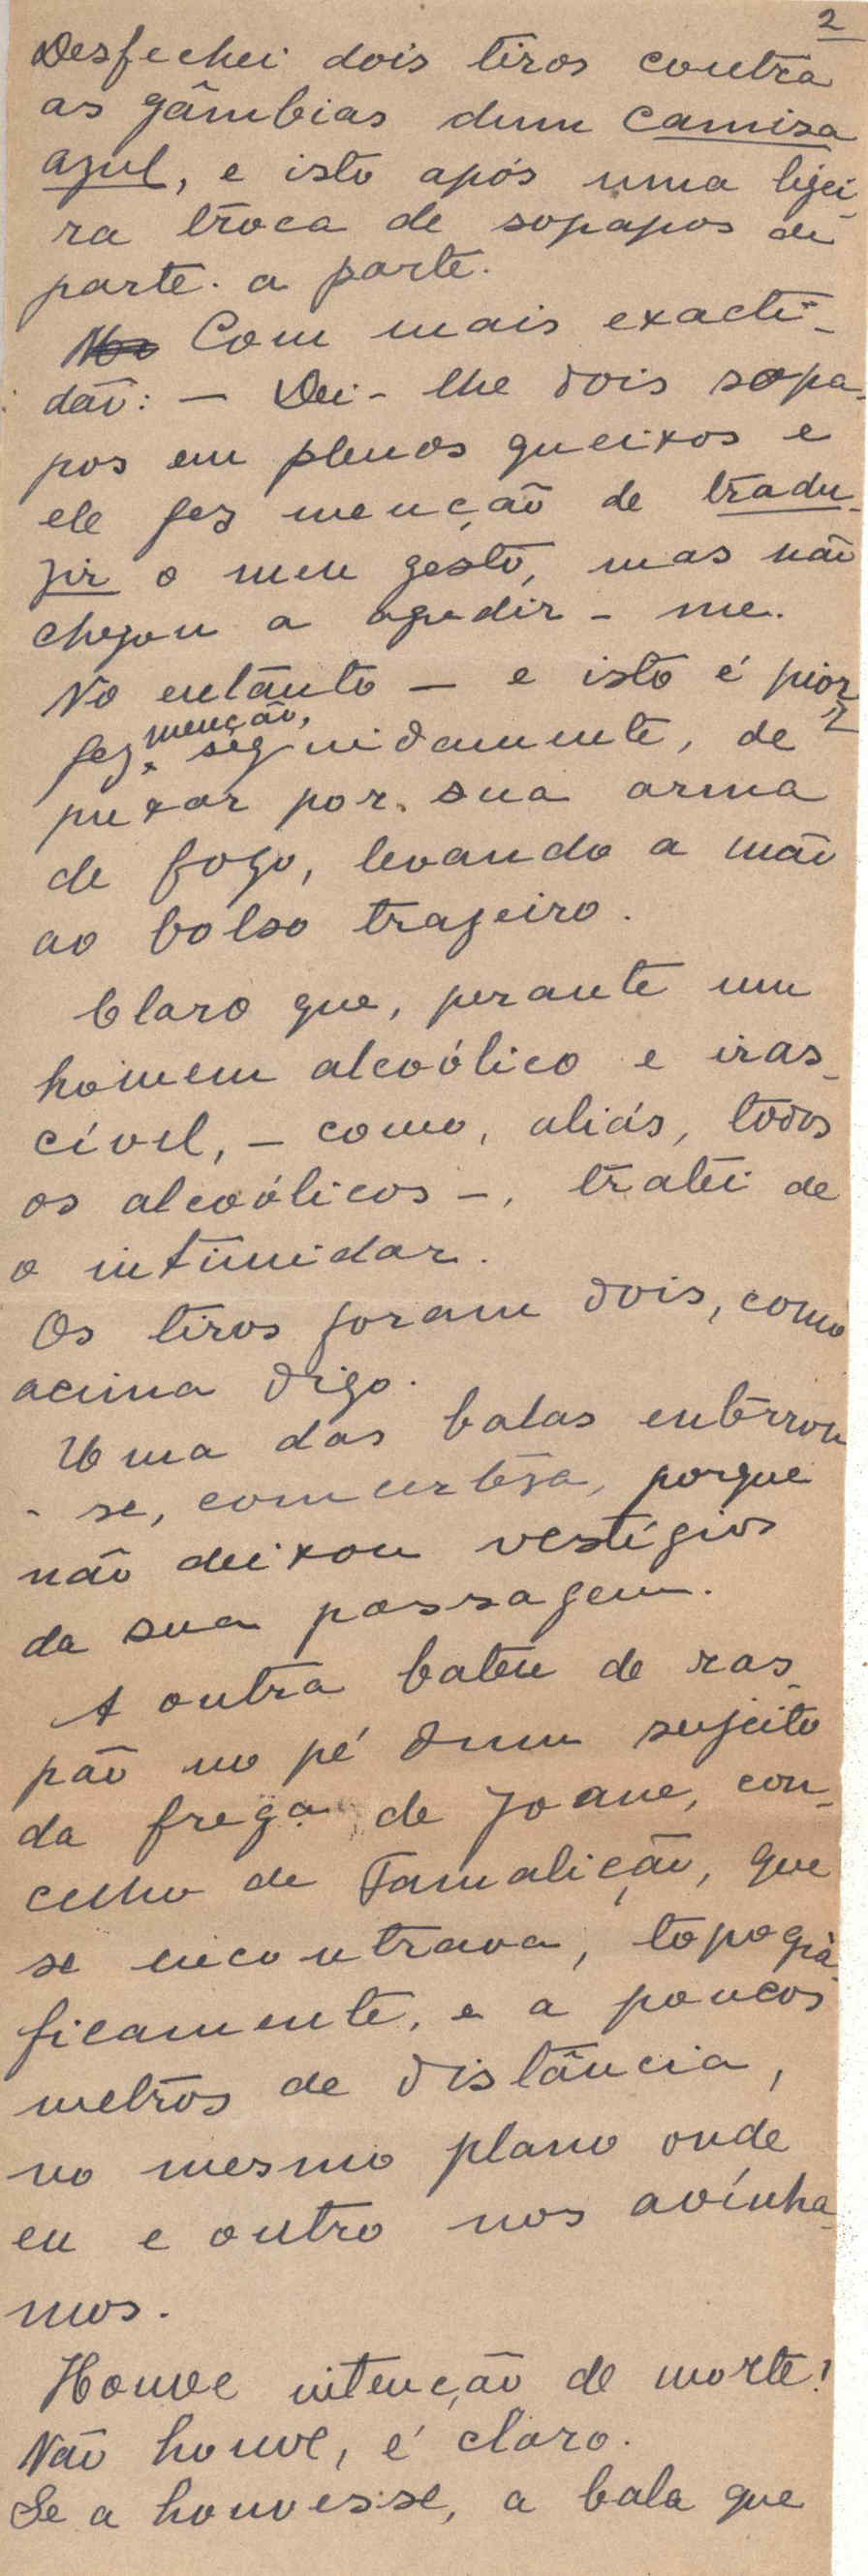 2
Desfechei dois tiros contra
as gâmbias dum camisa
azul, e isto após uma ligei-
ra troca de sopapos de
parte a parte.
Com mais exacti-
dão: — Dei-lhe dois sopa-
pos em plenos queixos e
ele fez menção de tradu-
zir o meu gesto, mas não
chegou a agredir-me.
No entanto — e isto é pior,
menção,
fez, seguidamente, de
puxar por sua arma
de fogo, levando a mão
ao bolso trazeiro.
Claro que, perante um
homem alcoólico e iras-
cível, — como, aliás, todos
os alcoólicos —, tratei de
o intimidar.
Os tiros foram dois, como
acima digo.
Uma das balas enterrou
-se, com certêsa, porque
não deixou vestígios
da sua passagem.
A outra bateu de ras-
pão no pé dum sujeito
da freg.a de Joane, con-
celho de Famalicão, que
se encontrava, topográ-
ficamente, e a poucos
metros de distância,
no mesmo plano onde
eu e outro nos avínha-
mos.
Houve intenção de morte?
Não houve, é claro.
Se a houvesse, a bala que